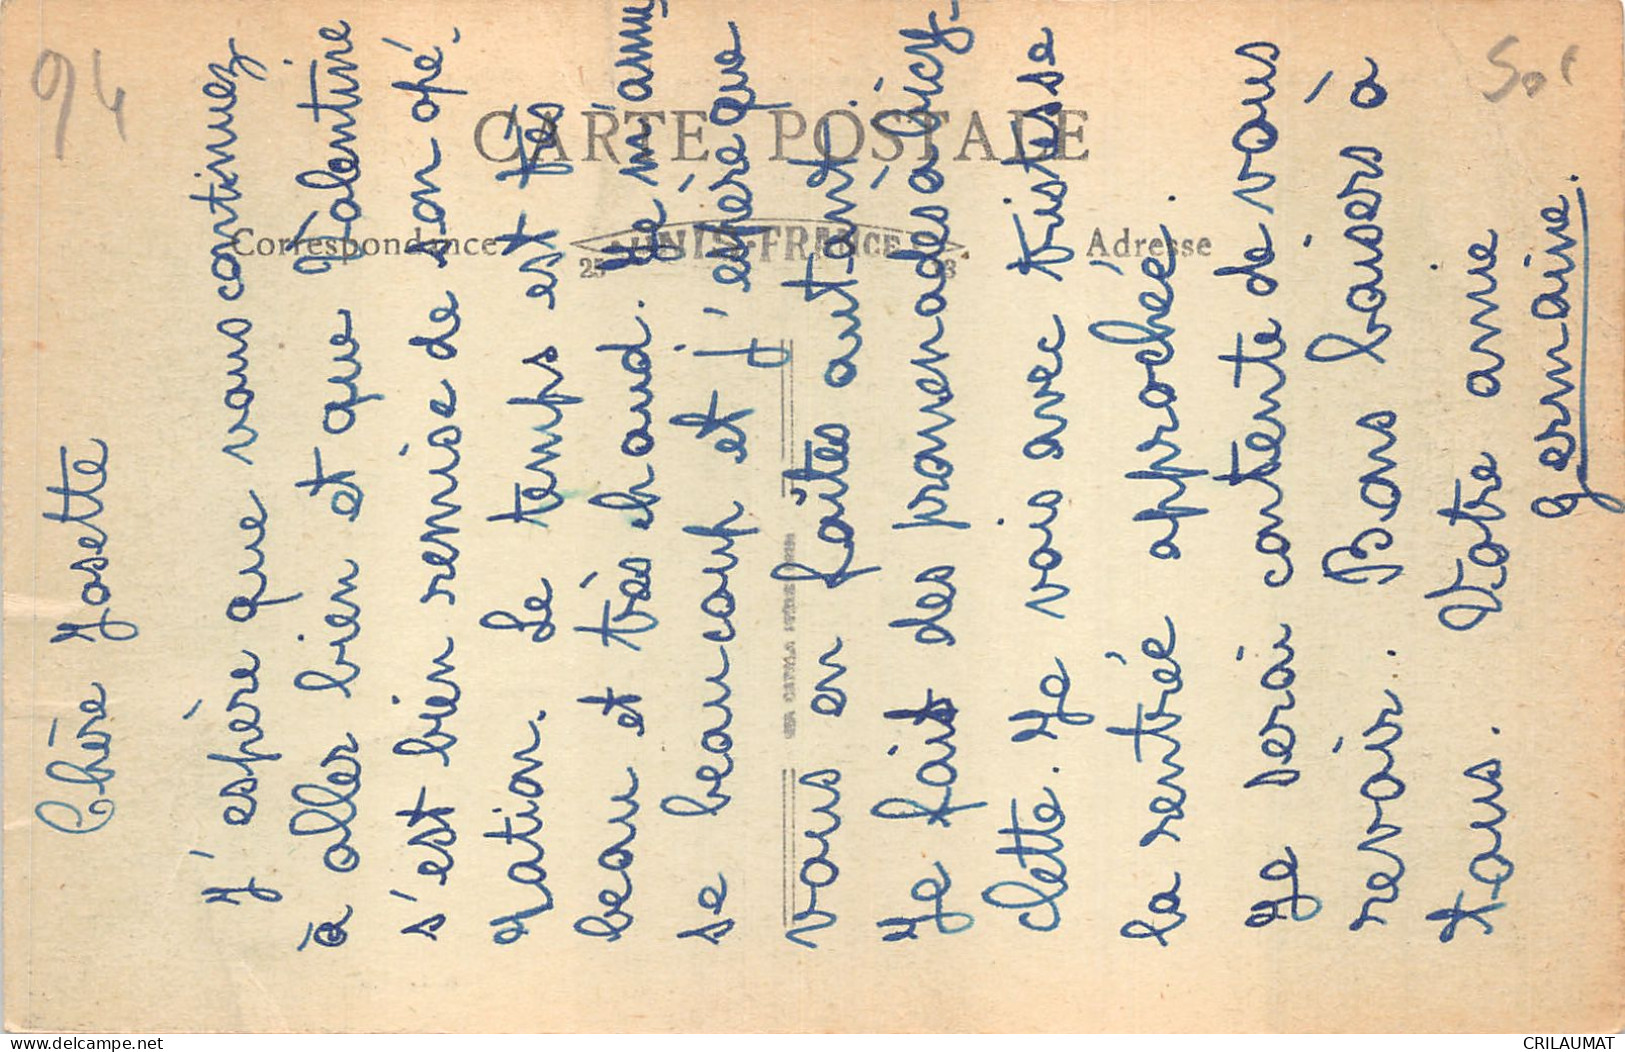 Chère Josette
J'espère que vous continuez
à aller bien et que Valentine
s'est bien remise de son opé-
ration. Le temps est très
beau et très chaud. Je m'amu
se beaucoup et j'espère que
vous en faites autant.
Je fait des promenades à bicy-
clette. Je vois avec tristesse
la rentrée approchée.
Je serai contente de vous
revoir. Bons baisers à
tous. Votre amie
Germaine.
CARTE POSTALE
Correspondance
UNIS-FRANCE
25
Adresse
94
CRILAUMAT
www.delcampe.net